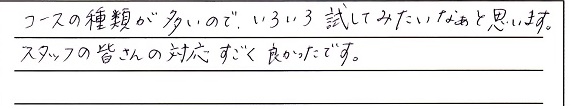 コースの種類が多いので、いろいろ試してみたいなぁと思います。
スタッフの皆さんの対応すごく良かったです。